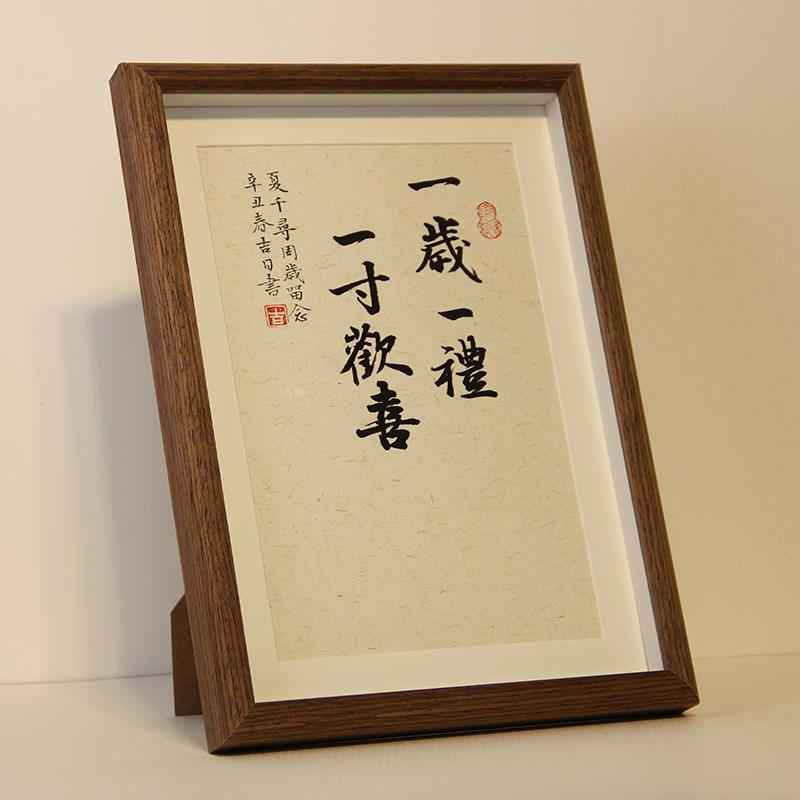 一歲一禮
一寸歡喜
夏千尋周歲留念
辛丑春吉日書
吉